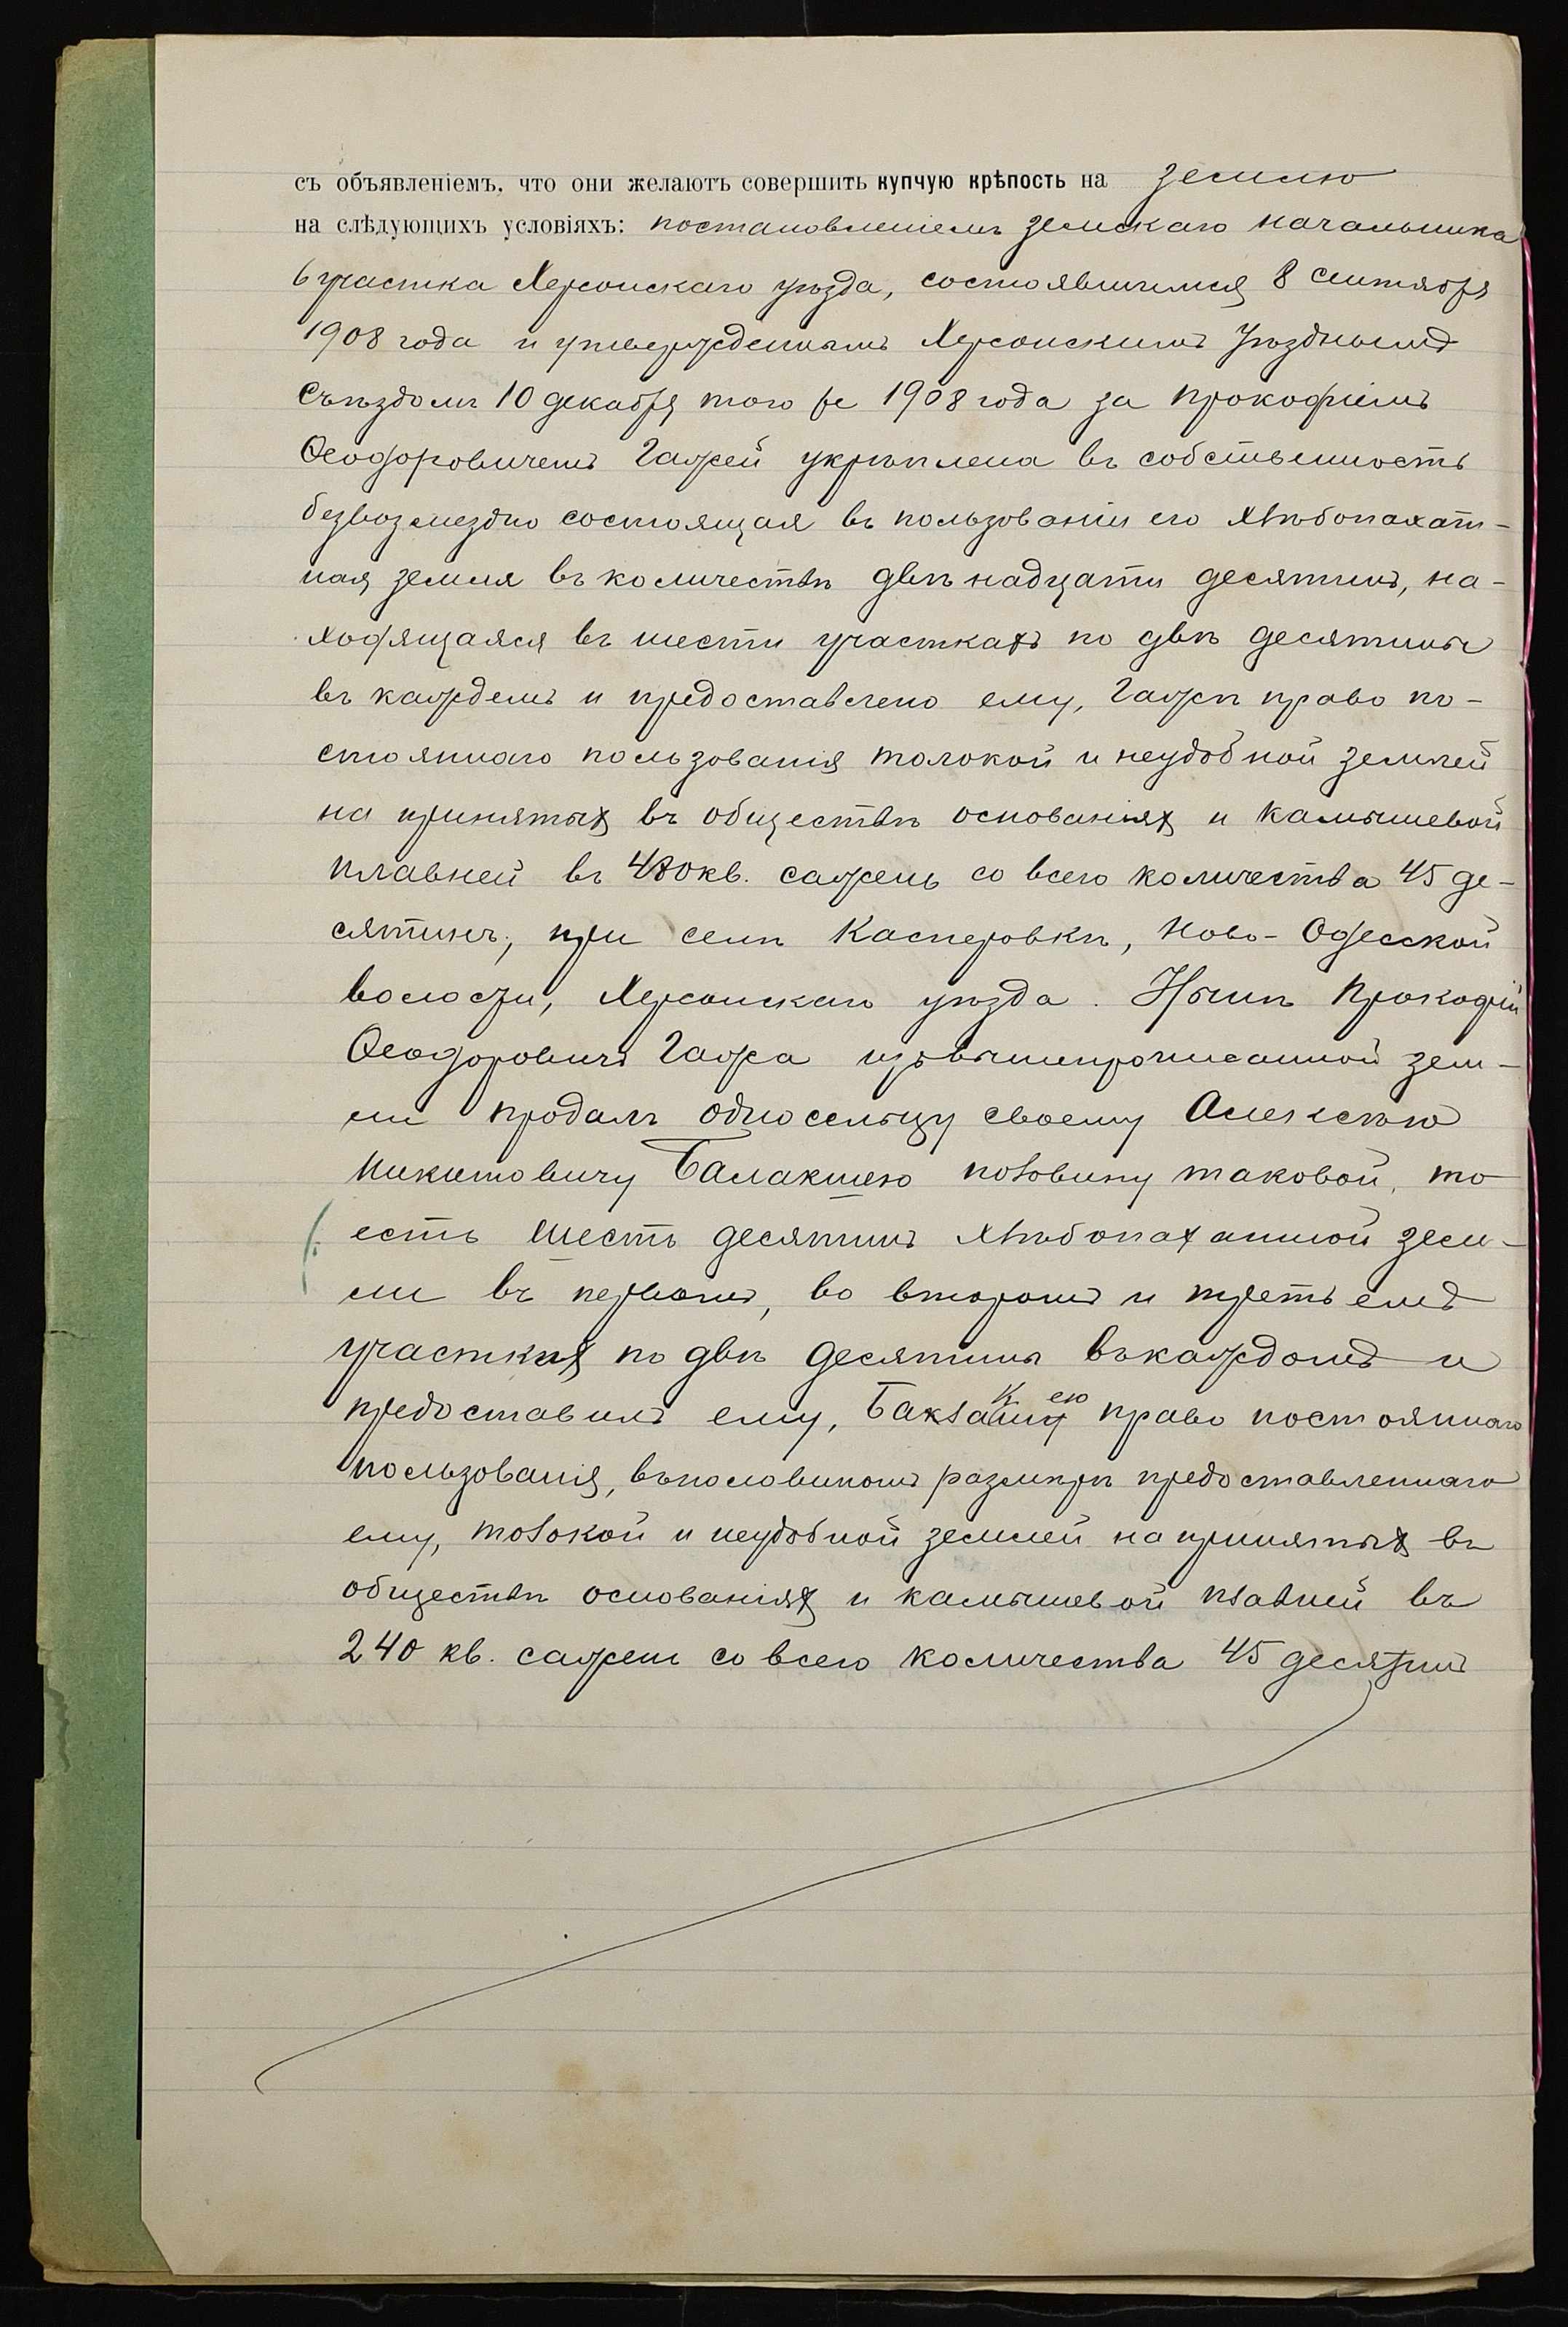 съ объявленіемъ, что они желаютъ совершить купчую крѣпость на землю
на слѣдующихъ условіяхъ: постановленіемъ земскаго начальника
6 участка Херсонскаго уѣзда, состоявшимся 8 сентября
1908 года и утвержденнымъ Херсонскимъ Уѣзднымъ
Съѣздомъ 10 декабря того же 1908 года за Прокофіемъ
Ѳеодоровичемъ Гажей укрѣплена въ собственность
безвозмездно состоящая въ пользованіи его хлѣбопахат-
ная земля въ количествѣ двѣнадцати десятинъ, на-
ходящаяся въ шести участкахъ по двѣ десятины
въ каждемъ и предоставлено ему, Гажѣ право по-
стояннаго пользованія толокой и неудобной землей
на принятыхъ въ обществѣ основаніяхъ и камышевой
плавней въ 480 кв. сажень со всего количества 45 де-
сятинъ, при селѣ Касперовкѣ, Ново-Одесской
волости, Херсонскаго уѣзда. Нынѣ Прокофій
Ѳеодоровичъ Гажа изъ вышепрописанной зем-
ли продалъ односельцу своему Алексѣю
Никитовичу Балакшею половину таковой, то
есть шесть десятинъ хлѣбопахатной зем-
ли въ первомъ, во второмъ и третьемъ
участкахъ по двѣ десятины въ каждомъ и
предоставилъ ему, право постояннаго
пользованія, въ половиномъ размѣрѣ предоставленнаго
ему, толокой и неудобной землей на принятыхъ въ
обществѣ основаніяхъ и камышевой плавней въ
240 кв. сажен со всего количества 45 десятинъ